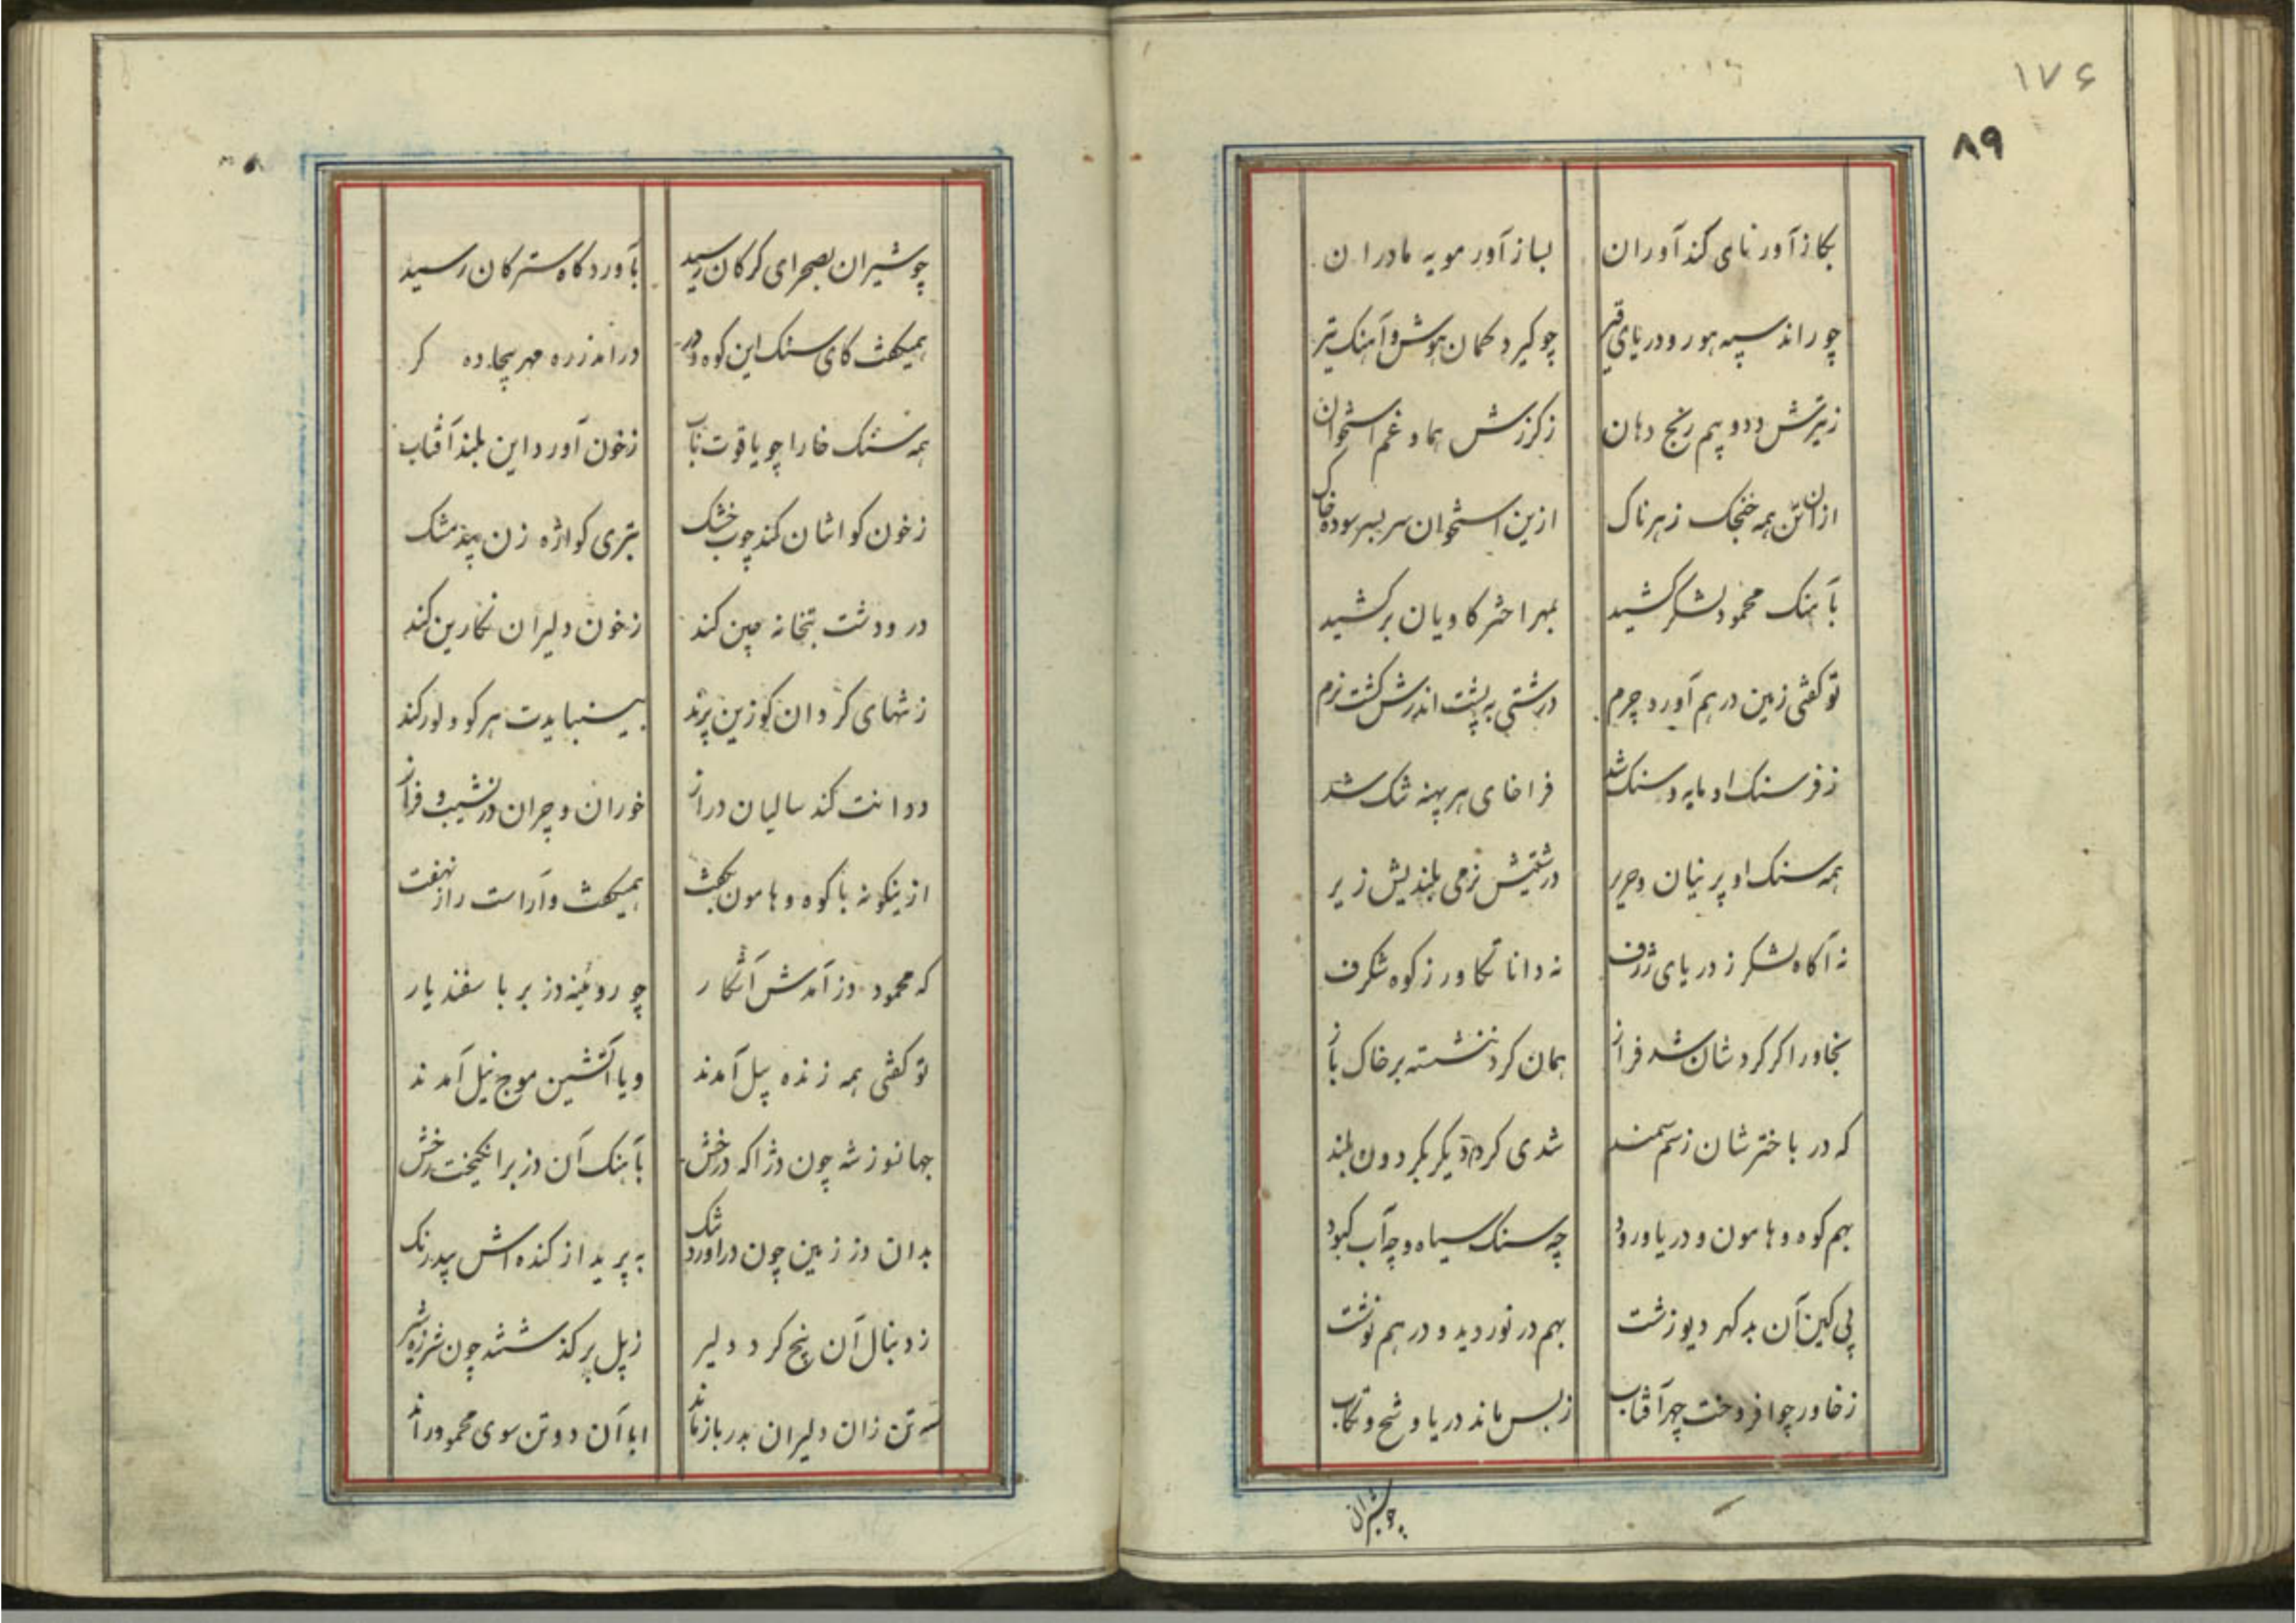 ۱۷۶
۸۹
بکاز آور نای کند آوران لباز آور مویه مادران
چو راند سپه هور و دریای قیر چو کیرد کمان هوش و آهنک تیر
زتیرش دد و پهم رنج دهان زکرزش هما و غم استخوان
ازان تن همه خنجک زهرناک ازین استخوان سر بسر سوده خاک
بآهنک محمود لشکر کشید بمهر اختر کاویان برکشید
تو کفتی زمین درهم آورد چرم درشتی به پشت اندرش کشت نرم
ز فرسنک او مایه و سنک شد فراخای هر پهنه تنک شد
همه سنک او پرنیان و حریر درشتیش نرمی بلندیش زیر
نه آکاه لشکر ز دریای ژرف نه دانا تکاور ز کوه شکرف
بخاور اکر کردشان شد فراز همان کرد ننشسته بر خاک باز
که در باخترشان زسم سمند شدی کرد دیکر بکردون بلند
بهم کوه و هامون و دریا و رود چه سنک سیاه و چه آب کبود
پی کین آن بد کهر دیو زشت بهم در نوردید و درهم نوشت
زخاور چو افروخت چهر آفتاب زبس ماند دریا و شخ و تکاب
چو شیران
چو شیران بصحرای کرکان رسید بآوردکاه سترکان رسید
همیکفت کای سنک این کوه و در درآمد زره مهر بیجاده کر
همه سنک خارا چو یاقوت ناب زخون آورد این بلند آفتاب
زخون کوانشان کند چوب خشک بتری کواژه زن بید مشک
در و دشت بتخانه چین کند زخون دلیران نکارین کند
ز تنهای کردان کوزین پرند بینبایدت هر کو و لورکند
دو انت کند سالیان دراز خوران و چران در نشیب و فراز
ازینکونه با کوه و هامون بکفت همیکفت و آراست راز نهفت
که محمود دز آمدش آشکار چو روئینه دز بر با سفندیار
تو کفتی همه زنده پیل آمدند و یا آتشین موج نیل آمدند
جهانوز شه چون دژ آکه درخش بآهنک آن دز برانکیخت رخش
بدان دز زمین چون درآورد تنک به پرید از کنده اش پیدرنک
ز دنبال آن پنج کرد دلیر زپل بر کذشتند چون شرزه شیر
سه تن زان دلیران بدر بازماند ابا آن دو تن سوی محمود راند